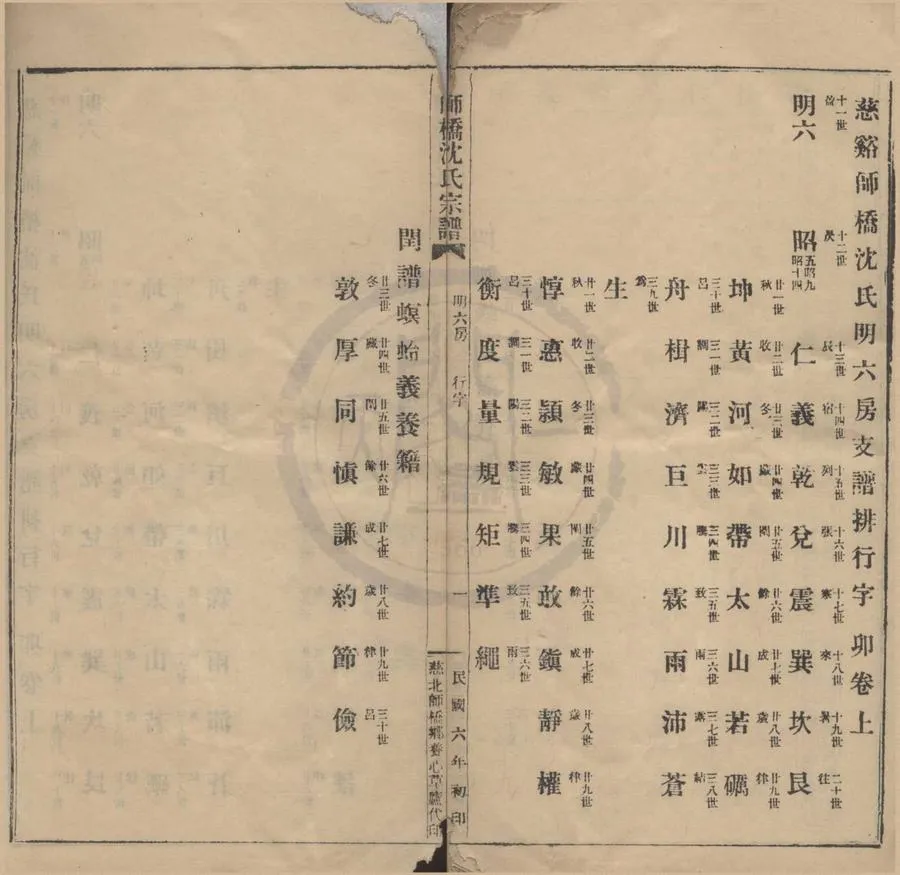 慈谿師橋沈氏明六房支譜排行字卯卷上
十一世 十二世 十三世 十四世 十五世 十六世 十七世 十八世 十九世 二十世
盈 昃 辰 宿 列 張 寒 來 暑 往
明六 昭 五昭九 昭十四 仁 義 乾 兌 震 巽 坎 艮
廿一世 廿二世 廿三世 廿四世 廿五世 廿六世 廿七世 廿八世 廿九世
秋 收 冬 藏 閏 餘 成 歲 律
坤 黃 河 如 帶 太 山 若 礪
三十世 三一世 三二世 三三世 三四世 三五世 三六世 三七世 三八世
呂 調 陽 雲 騰 致 雨 露 結
舟 楫 濟 巨 川 霖 雨 沛 蒼
三九世
為
生
廿一世 廿二世 廿三世 廿四世 廿五世 廿六世 廿七世 廿八世 廿九世
秋 收 冬 藏 閏 餘 成 歲 律
惇 惠 穎 敏 果 敢 鎮 靜 權
三十世 三一世 三二世 三三世 三四世 三五世 三六世
呂 調 陽 雲 騰 致 雨
衡 度 量 規 矩 準 繩
師橋沈氏宗譜
明六房 行字 一
民國六年初印
慈北師橋鄉養心草廬代印
閏譜螟蛉義養籍
廿三世 廿四世 廿五世 廿六世 廿七世 廿八世 廿九世 三十世
冬 藏 閏 餘 成 歲 律 呂
敦 厚 同 慎 謙 約 節 儉